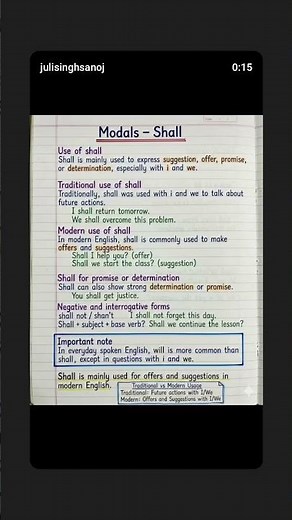 julisinghsanoj
0:15
Modals – Shall
Use of shall
Shall is mainly used to express suggestion, offer, promise,
or determination, especially with i and we.
Traditional use of shall
Traditionally, shall was used with i and we to talk about
future actions.
I shall return tomorrow.
We shall overcome this problem.
Modern use of shall
In modern English, shall is commonly used to make
offers and suggestions.
Shall I help you? (offer)
Shall we start the class? (suggestion)
Shall for promise or determination
Shall can also show strong determination or promise.
You shall get justice.
Negative and interrogative forms
shall not / shan't I shall not forget this day.
Shall + subject + base verb? Shall we continue the lesson?
Important note
In everyday spoken English, will is more common than
shall, except in questions with i and we.
Shall is mainly used for offers and suggestions in
modern English.
Traditional vs Modern Usage
Traditional: Future actions with I/We
Modern: Offers and Suggestions with I/We